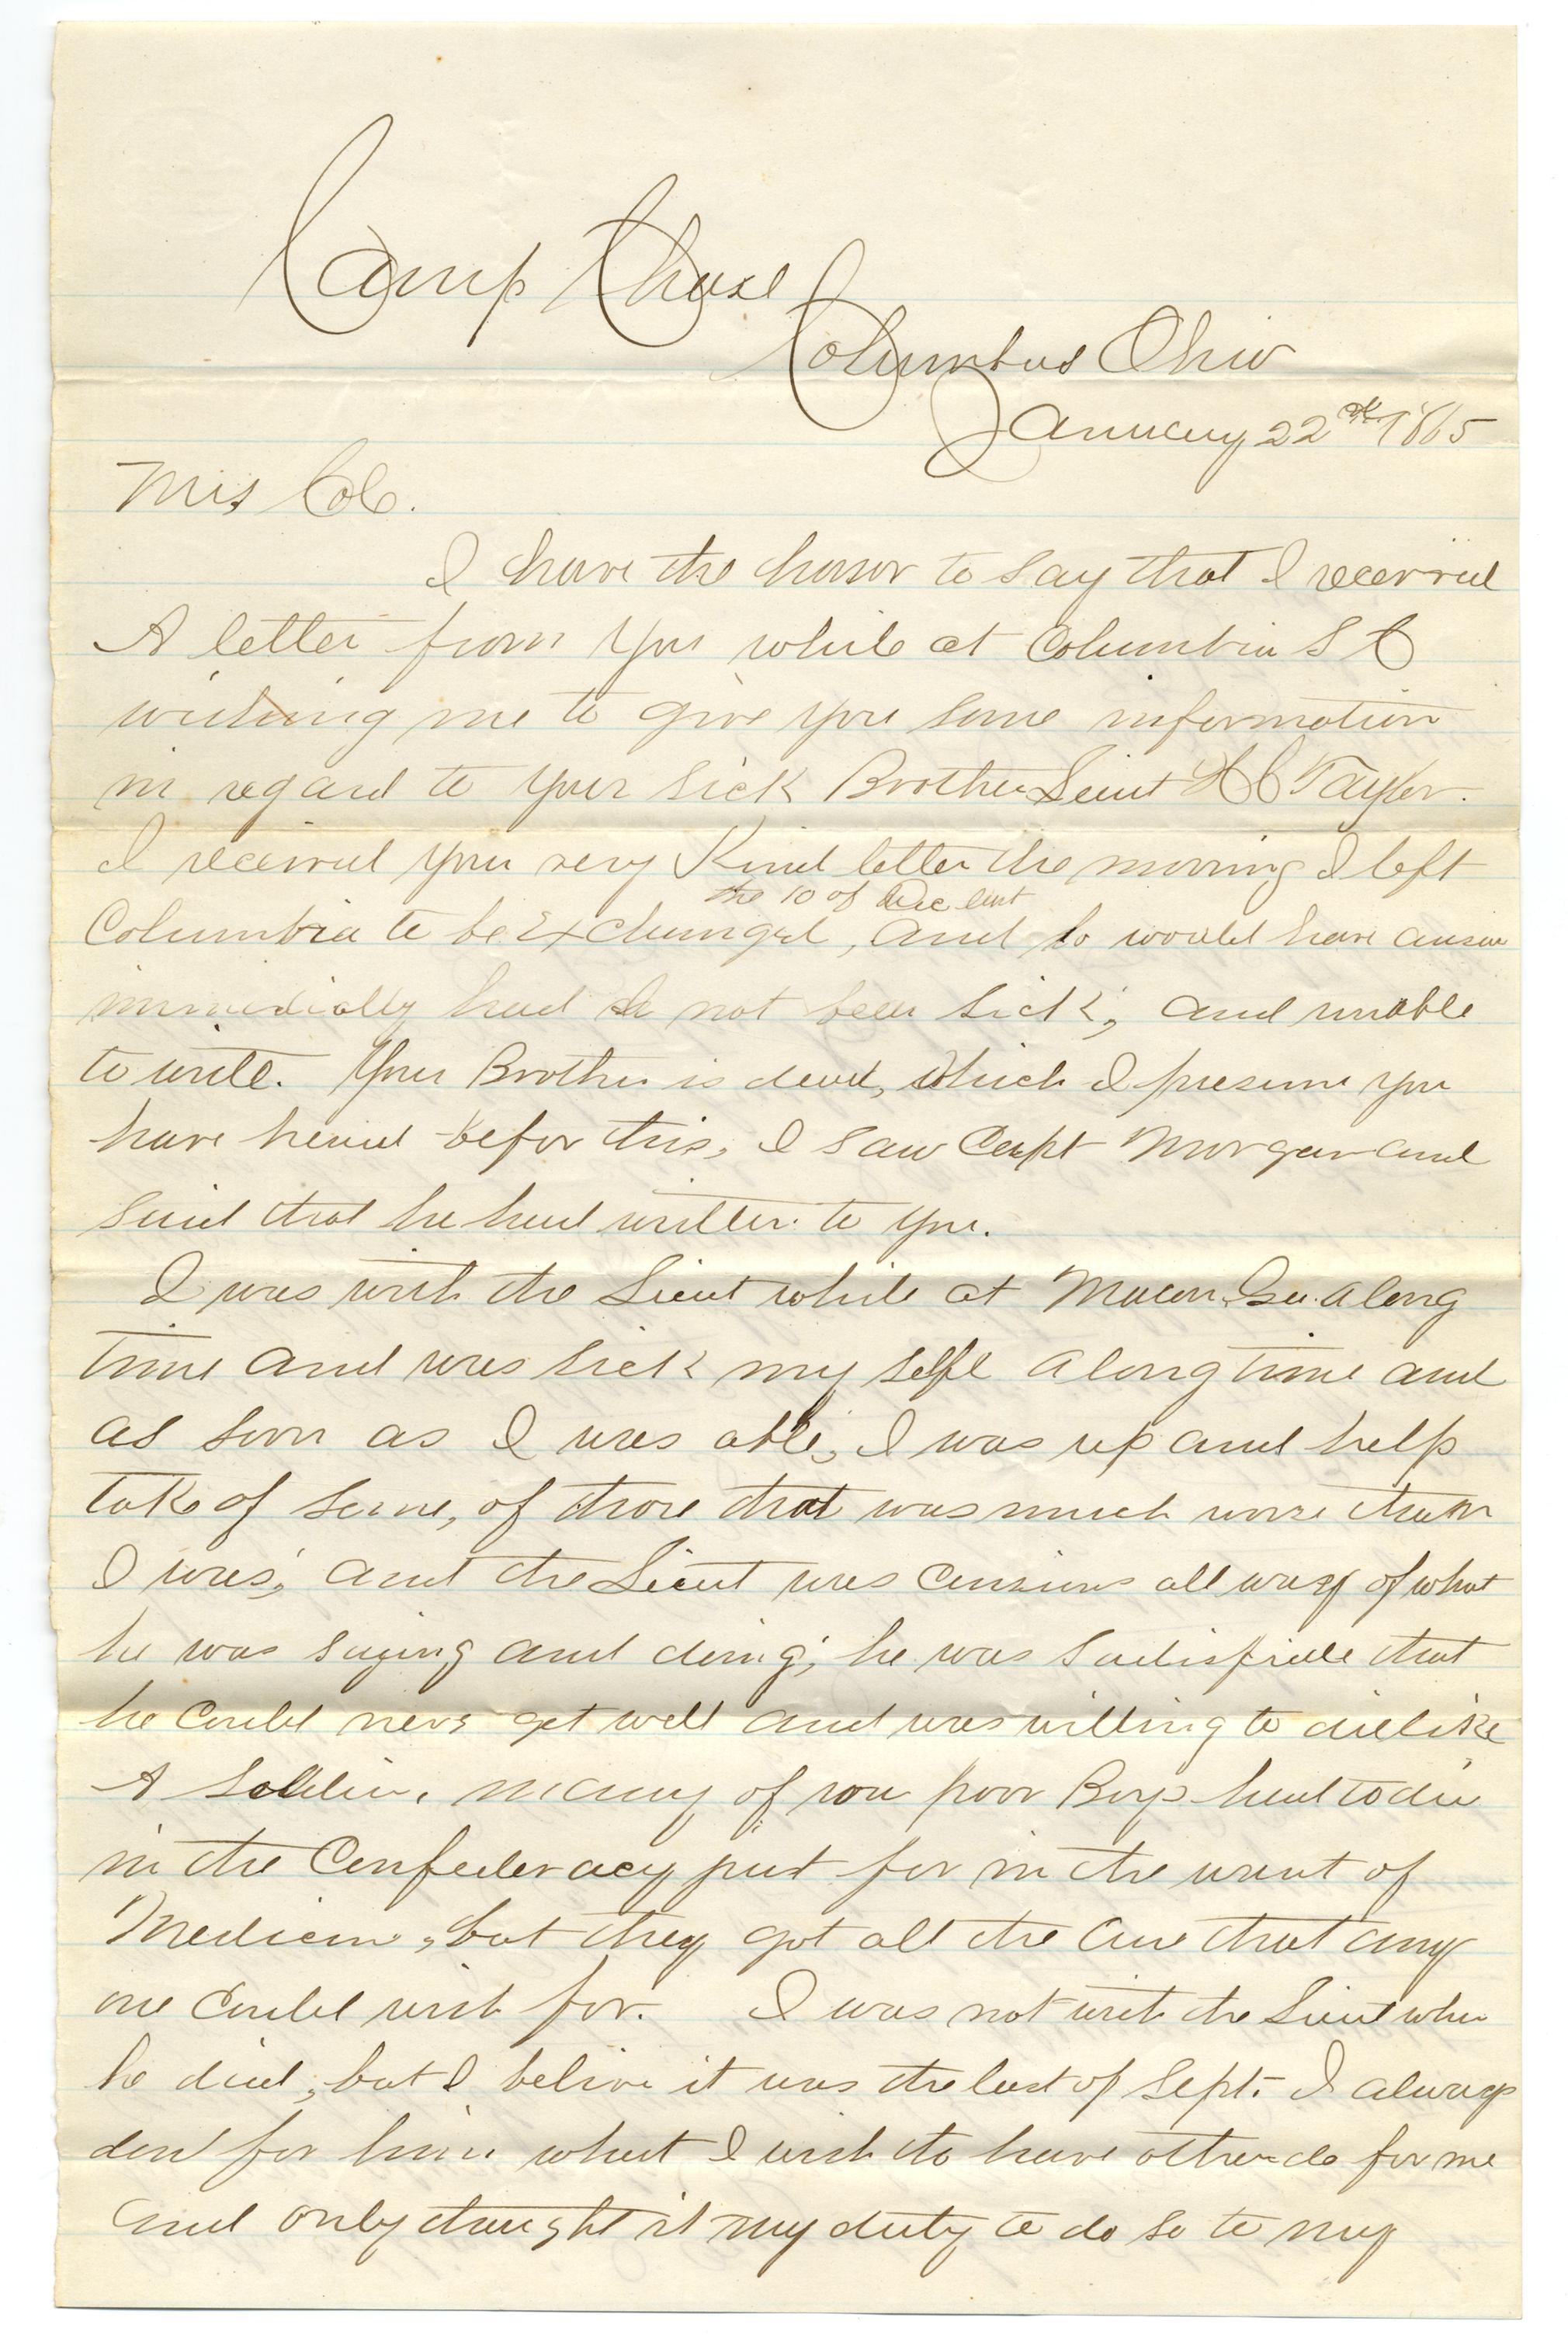 Camp Chase
Columbus Ohio
January 22nd 1865
Mis Cole.
I have the honor to say that I received
A letter from you while at Columbia S C
wishing me to give you some information
in regard to your sick Brother Lieut H C Taylor.
I received your very Kind letter the morning I left
the 10 of Dec last
Columbia to be Exchanged, and so would have answe
immedially had I not been sick, and unable
to write. Your Brother is dead, which I presume you
have heard befor this, I saw Capt Morgan and
said that he had written to you.
I was with the Lieut while at Macon Ga. a long
time and was sick my self a long time and
as soon as I was able, I was up and help
take of some, of those that was much worse than
I was, and the Lieut was all ways of what
he was saying and doing, he was sadisfide that
he could never get well and was willing to die like
A Soldier, many of our poor Boys had to die
in the Confederacy just for in the want of
Medicine, but they got all the care that any
one could wish for. I was not with the Lieut when
he died, but I belive it was the last of Sept. I always
don for him what I wish to have other do for me
and only thought it my duty to do so to my